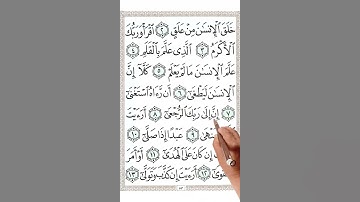 خَلَقَ ٱلْإِنسَـٰنَ مِنْ عَلَقٍ ٢ ٱقْرَأْ وَرَبُّكَ
ٱلْأَكْرَمُ ٣ ٱلَّذِى عَلَّمَ بِٱلْقَلَمِ ٤
عَلَّمَ ٱلْإِنسَـٰنَ مَا لَمْ يَعْلَمْ ٥ كَلَّآ إِنَّ
ٱلْإِنسَـٰنَ لَيَطْغَىٰٓ ٦ أَن رَّءَاهُ ٱسْتَغْنَىٰٓ
٧ إِنَّ إِلَىٰ رَبِّكَ ٱلرُّجْعَىٰٓ ٨ أَرَءَيْتَ
يَنْهَىٰ ٩ عَبْدًا إِذَا صَلَّىٰٓ ١٠
إِن كَانَ عَلَى ٱلْهُدَىٰٓ ١١ أَوْ أَمَرَ
١٢ أَرَءَيْتَ إِن كَذَّبَ وَتَوَلَّىٰٓ ١٣